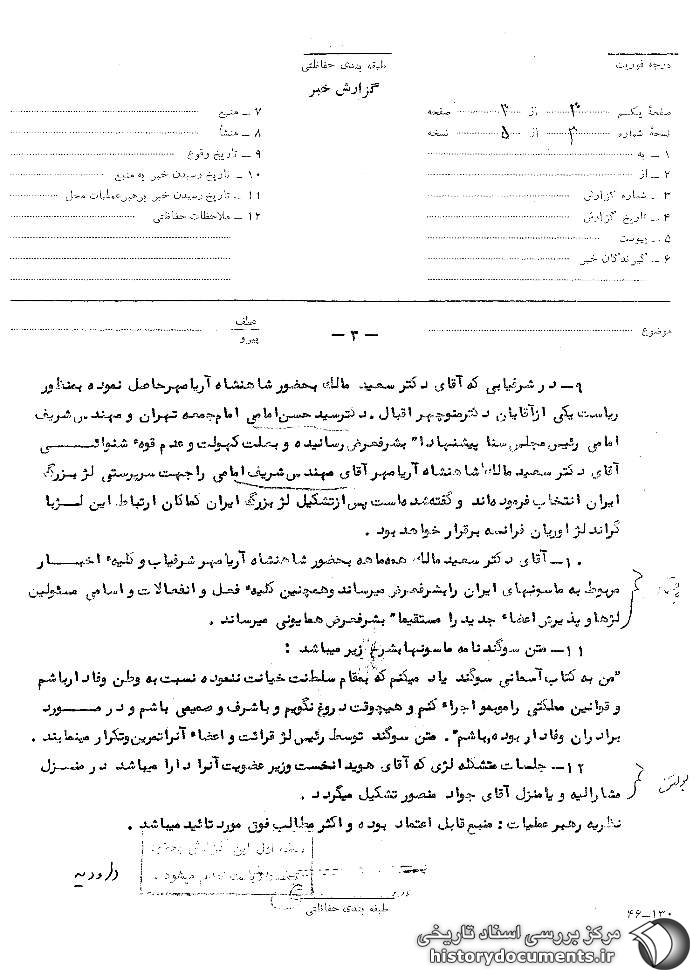 درجه فوریت
طبقه بندی حفاظتی
گزارش خبر
صفحهٔ یکم ۳ از ۳ صفحه
نسخهٔ شماره ۳ از ۵ نسخه
۱ - به
۲ - از
۳ - شماره گزارش
۴ - تاریخ گزارش
۵ - پیوست
۶ - گیرندگان خبر
۷ - منبع
۸ - منشأ
۹ - تاریخ وقوع
۱۰ - تاریخ رسیدن خبر به منبع
۱۱ - تاریخ رسیدن خبر برهبر عملیات محل
۱۲ - ملاحظات حفاظتی
موضوع
- ۳ -
عطف
پیرو
۹- در شرفیابی که آقای دکتر سعید مالك بحضور شاهنشاه آریامهر حاصل نموده بمنظور
ریاست یکی از آقایان دکتر منوچهر اقبال ، دکتر سید حسن امامی امام جمعه تهران و مهندس شریف
امامی رئیس مجلس سنا پیشنهادا" بشرفعرض رسانیده و بعلت کهولت و عدم قوه شنوائی
آقای دکتر سعید مالك شاهنشاه آریامهر آقای مهندس شریف امامی را جهت سرپرستی لژ بزرگ
ایران انتخاب فرموده اند و گفته شده است پس از تشکیل لژ بزرگ ایران کماکان ارتباط این لژ با
گراند لژ اوریان فرانسه برقرار خواهد بود .
۱۰- آقای دکتر سعید مالك همه ماهه بحضور شاهنشاه آریامهر شرفیاب و کلیه اخبار
مربوط به ماسونهای ایران را بشرفعرض میرساند و همچنین کلیه فصل و انفعالات و اسامی مسئولین
لژها و پذیرش اعضاء جدید را مستقیما" بشرفعرض همایونی میرساند .
۱۱- متن سوگندنامه ماسونها بشرح زیر میباشد :
"من به کتاب آسمانی سوگند یاد میکنم که بمقام سلطنت خیانت ننموده نسبت به وطن وفادار باشم
و قوانین مملکتی را موبمو اجراء کنم و هیچوقت دروغ نگویم و باشرف و صمیمی باشم و در مورد
برادران وفادار بوده باشم" . متن سوگند توسط رئیس لژ قرائت و اعضاء آنرا تمرین و تکرار مینمایند .
۱۲- جلسات متشکله لژی که آقای هویدا نخست وزیر عضویت آنرا دارا میباشد در منزل
مشارالیه و یا منزل آقای جواد منصور تشکیل میگردد .
بولتن
نظریه رهبر عملیات : منبع قابل اعتماد بوده و اکثر مطالب فوق مورد تائید میباشد .
طبقه بندی حفاظتی
۴۶-۱۳۰
مرکز بررسی اسناد تاریخی
historydocuments.ir